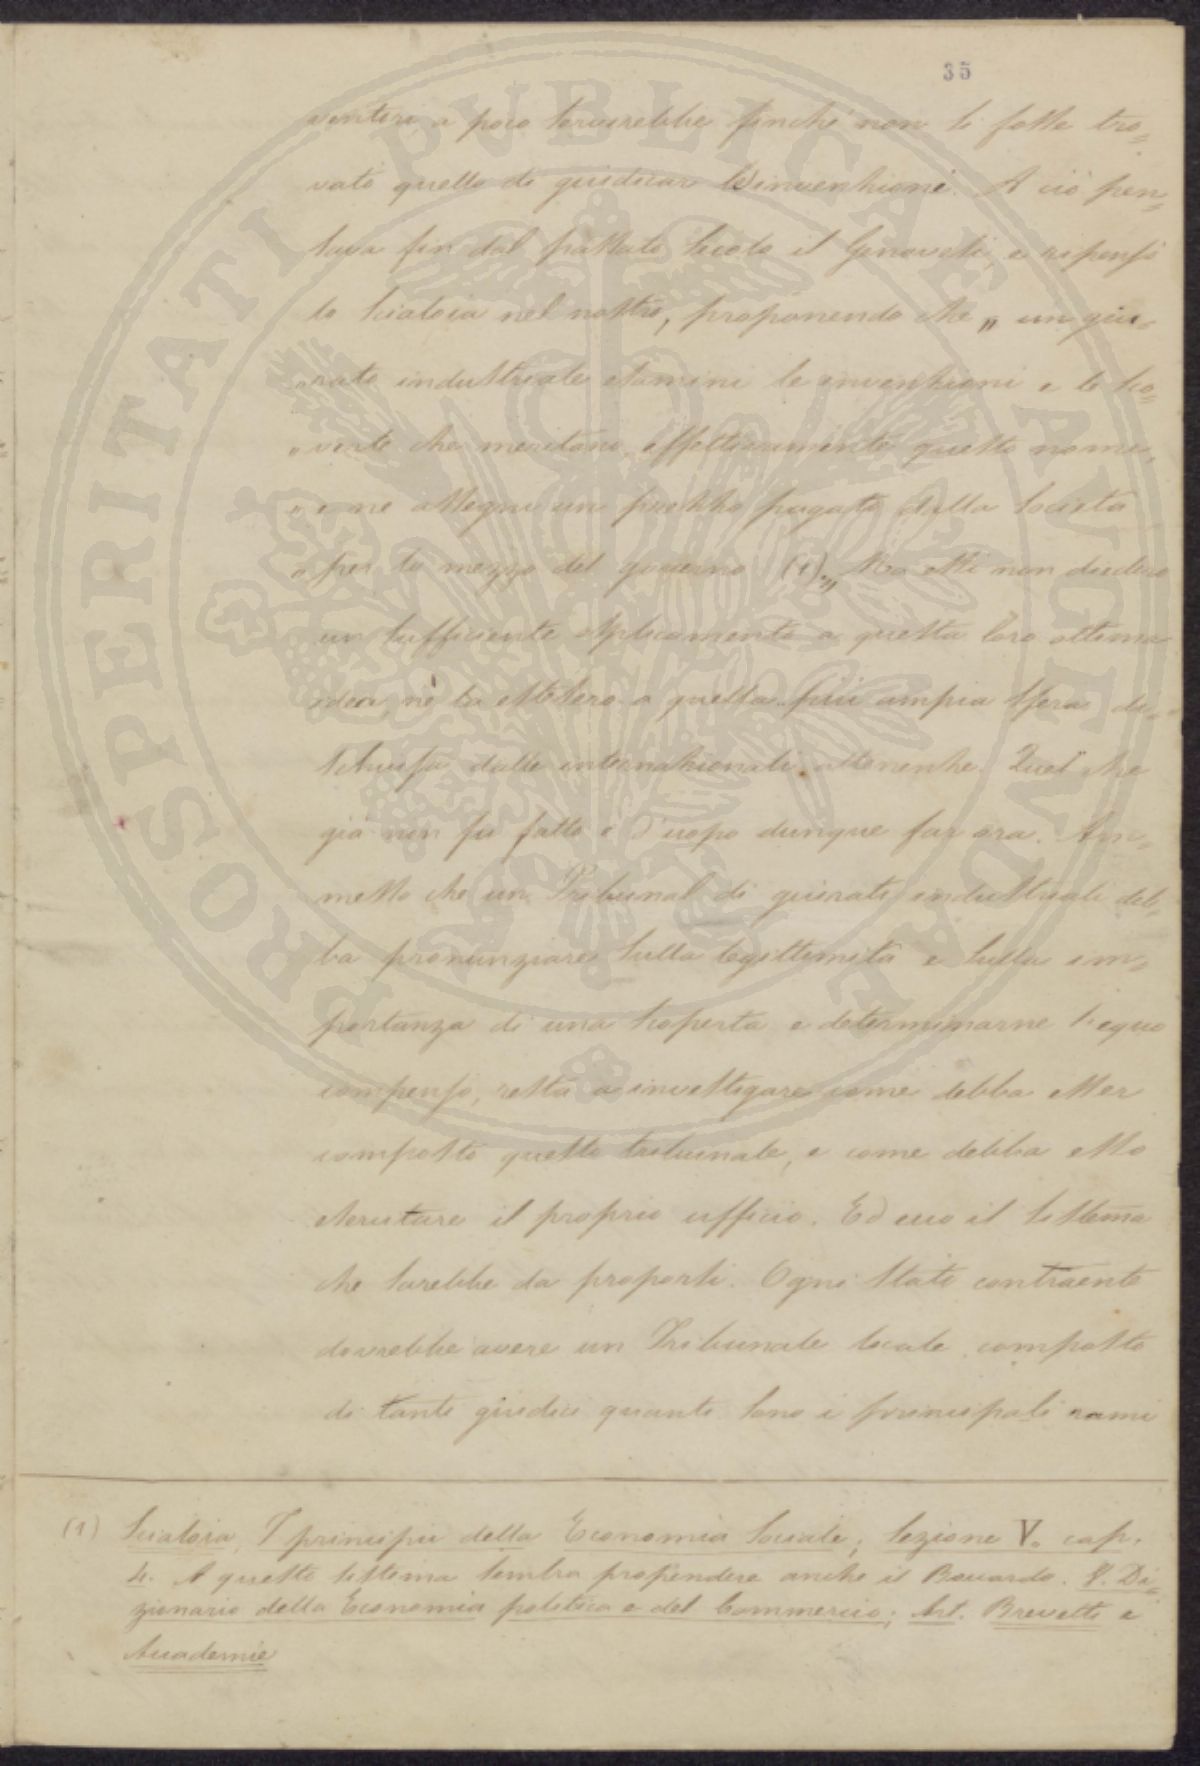 35
ventori a poco servirebbe finchè non si fosse tro=
vato quello di giudicar le invenzioni. A ciò pen=
sava fin dal passato secolo il Genovesi, e ripensò
lo Scialoia nel nostro, proponendo che „ un giu=
„ rato industriale esamini le invenzioni e le sco=
„ verte che meritano effettivamente questo nome,
„ e ne assegni un prezzo pagato dalla società
„ per lo mezzo del governo (1)„ Ma essi non diedero
un sufficiente esplicamento a questa loro ottima
idea, nè la estesero a quella più ampia sfera di=
schiusa dalle internazionali attenenze. Quel che
già non fu fatto è d'uopo dunque far ora. Am=
messo che un Tribunal di giurati industriali deb=
ba pronunziare sulla legittimità e sulla im=
portanza di una scoperta e determinarne l'equo
compenso, resta a investigare come debba esser
composto questo tribunale, e come debba esso
esercitare il proprio ufficio. Ed ecco il sistema
che sarebbe da proporsi. Ogni Stato contraente
dovrebbe avere un Tribunale locale composto
di tanti giudici quanti sono i principali rami
(1) Scialoia, I principii della Economia Sociale; Sezione V. cap.
4. A questo sistema sembra propendere anche il Boccardo. V. Di=
zionario della Economia politica e del Commercio; Art. Brevetti e
Accademie
PROSPERITATI PVBLICAE AVGENDAE